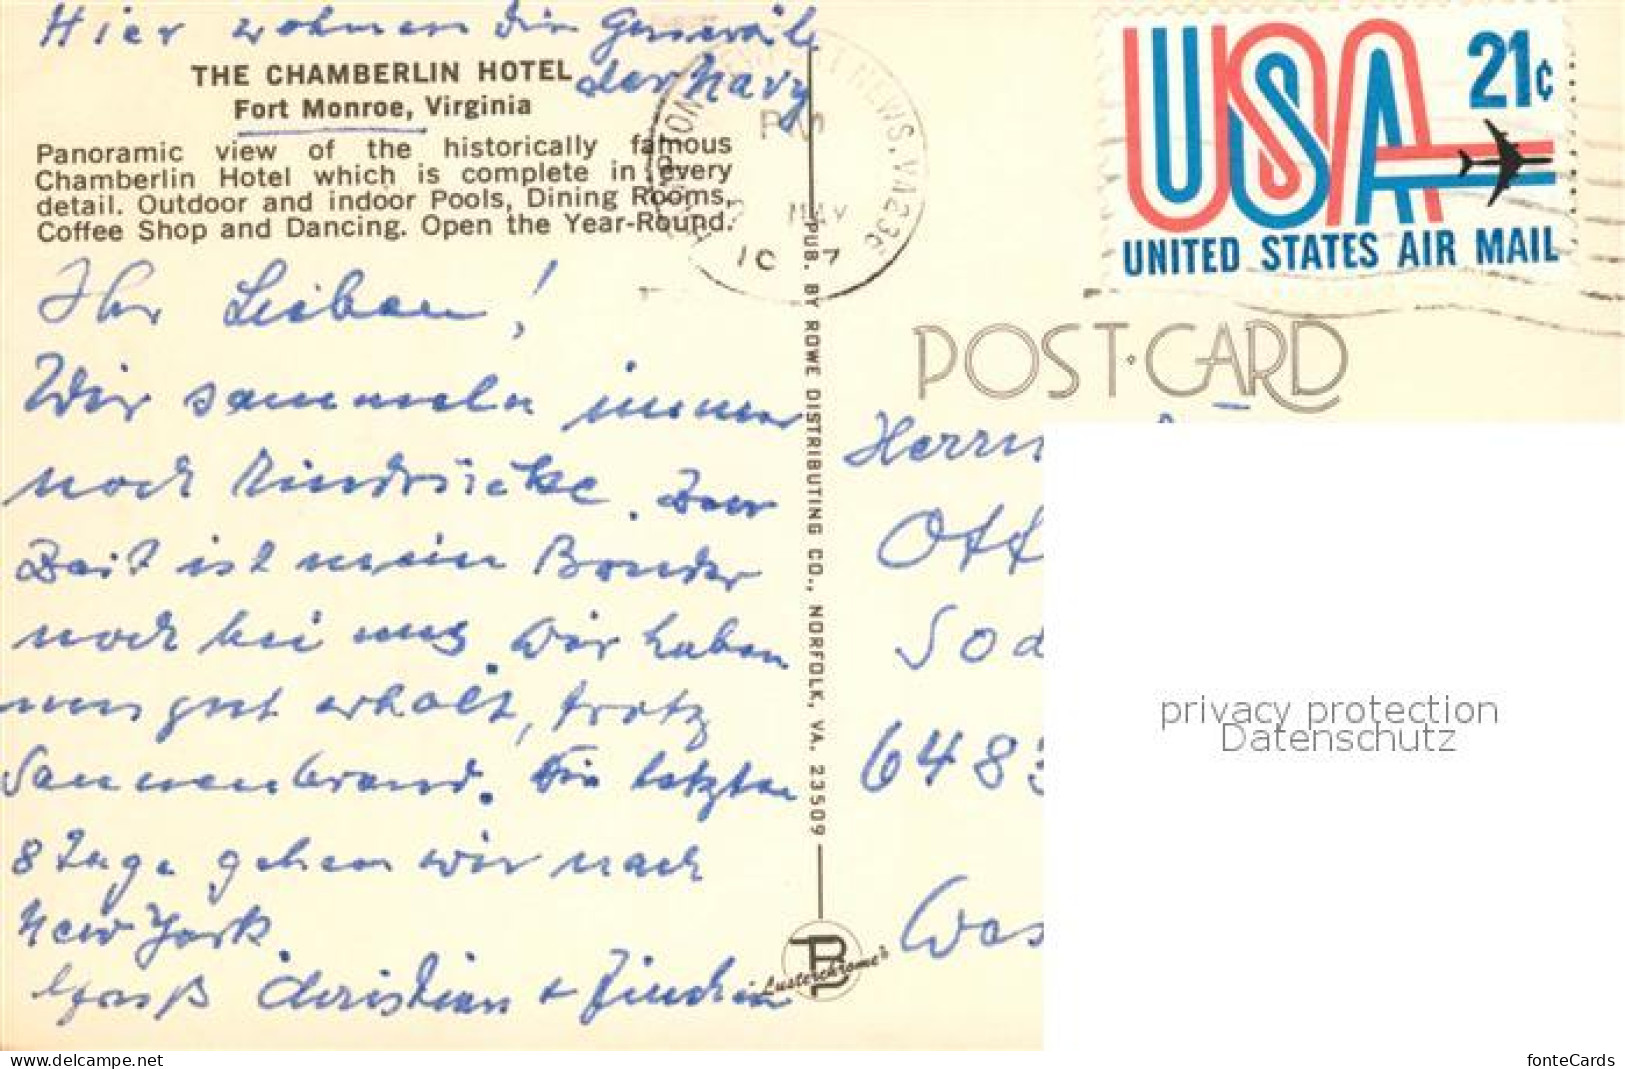 Hier wohnen die Generäle
der Navy
THE CHAMBERLIN HOTEL
Fort Monroe, Virginia
Panoramic view of the historically famous
Chamberlin Hotel which is complete in every
detail. Outdoor and indoor Pools, Dining Rooms,
Coffee Shop and Dancing. Open the Year-Round.
Ihr Lieben!
Wir sammeln immer
noch Eindrücke. Zur
Zeit ist mein Bruder
noch bei uns. Wir haben
uns gut erholt, trotz
Sonnenbrand. Die letzten
8 Tage gehen wir nach
New York.
Gruß Christian +
PUB. BY ROWE DISTRIBUTING CO., NORFOLK, VA. 23509
Lusterchrome
NEWS, VA
PM
USA
21¢
UNITED STATES AIR MAIL
POST CARD
Herrn
Ott
Sod
6483
privacy protection
Datenschutz
www.delcampe.net
fonteCards